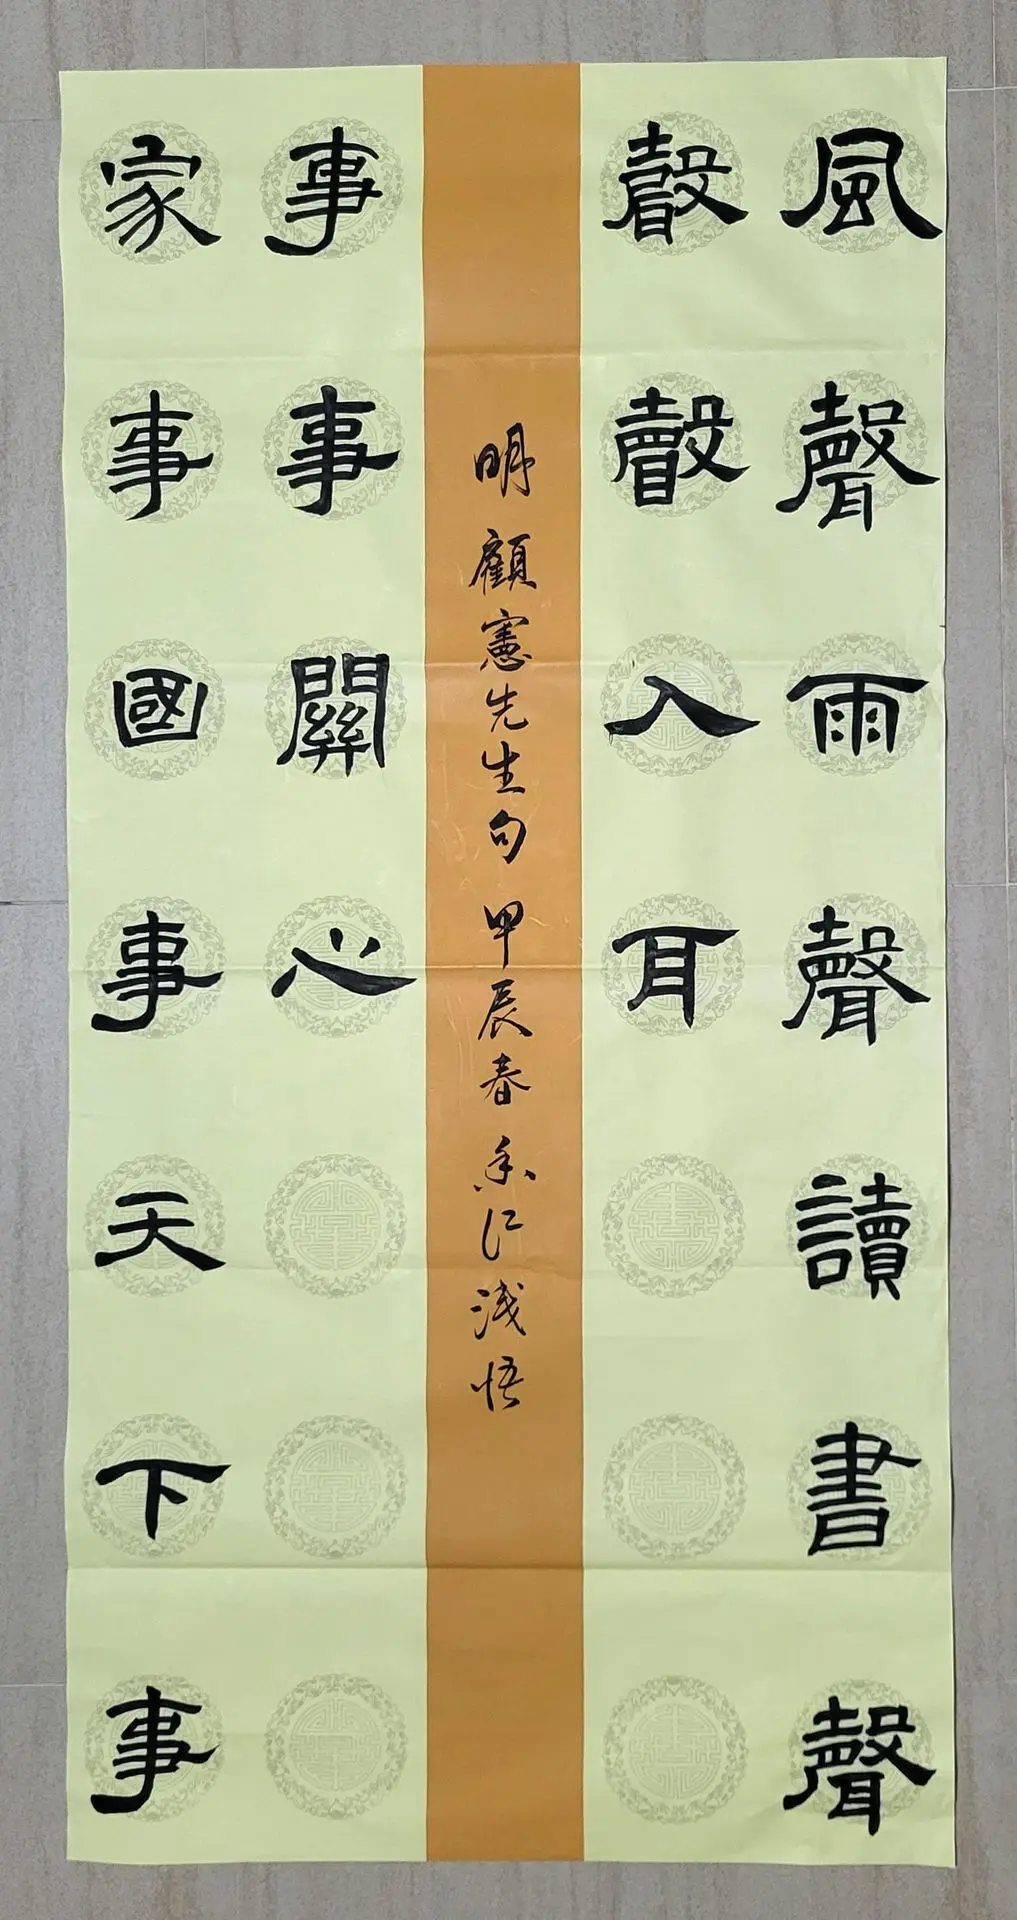 風聲雨聲讀書聲
聲聲入耳
家事國事天下事
事事關心
明 顧憲先生句 甲辰春 仁淺悟